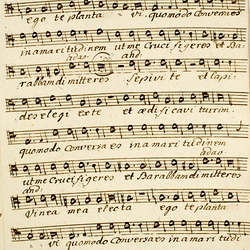 ego te planta vi. quomodo Conversa es
in amaritudinem ut me Cruci figeres et Ba-
rabbam dimitteres Sepivi te et lapi-
des elegi ex te et ædificavi turrim.
quomodo Conversa es in amaritudinem
ut me Crucifigeres et Barabbam dimitteres
Vinea mea electa ego te planta
vi quomodo Conversa es in amaritudi